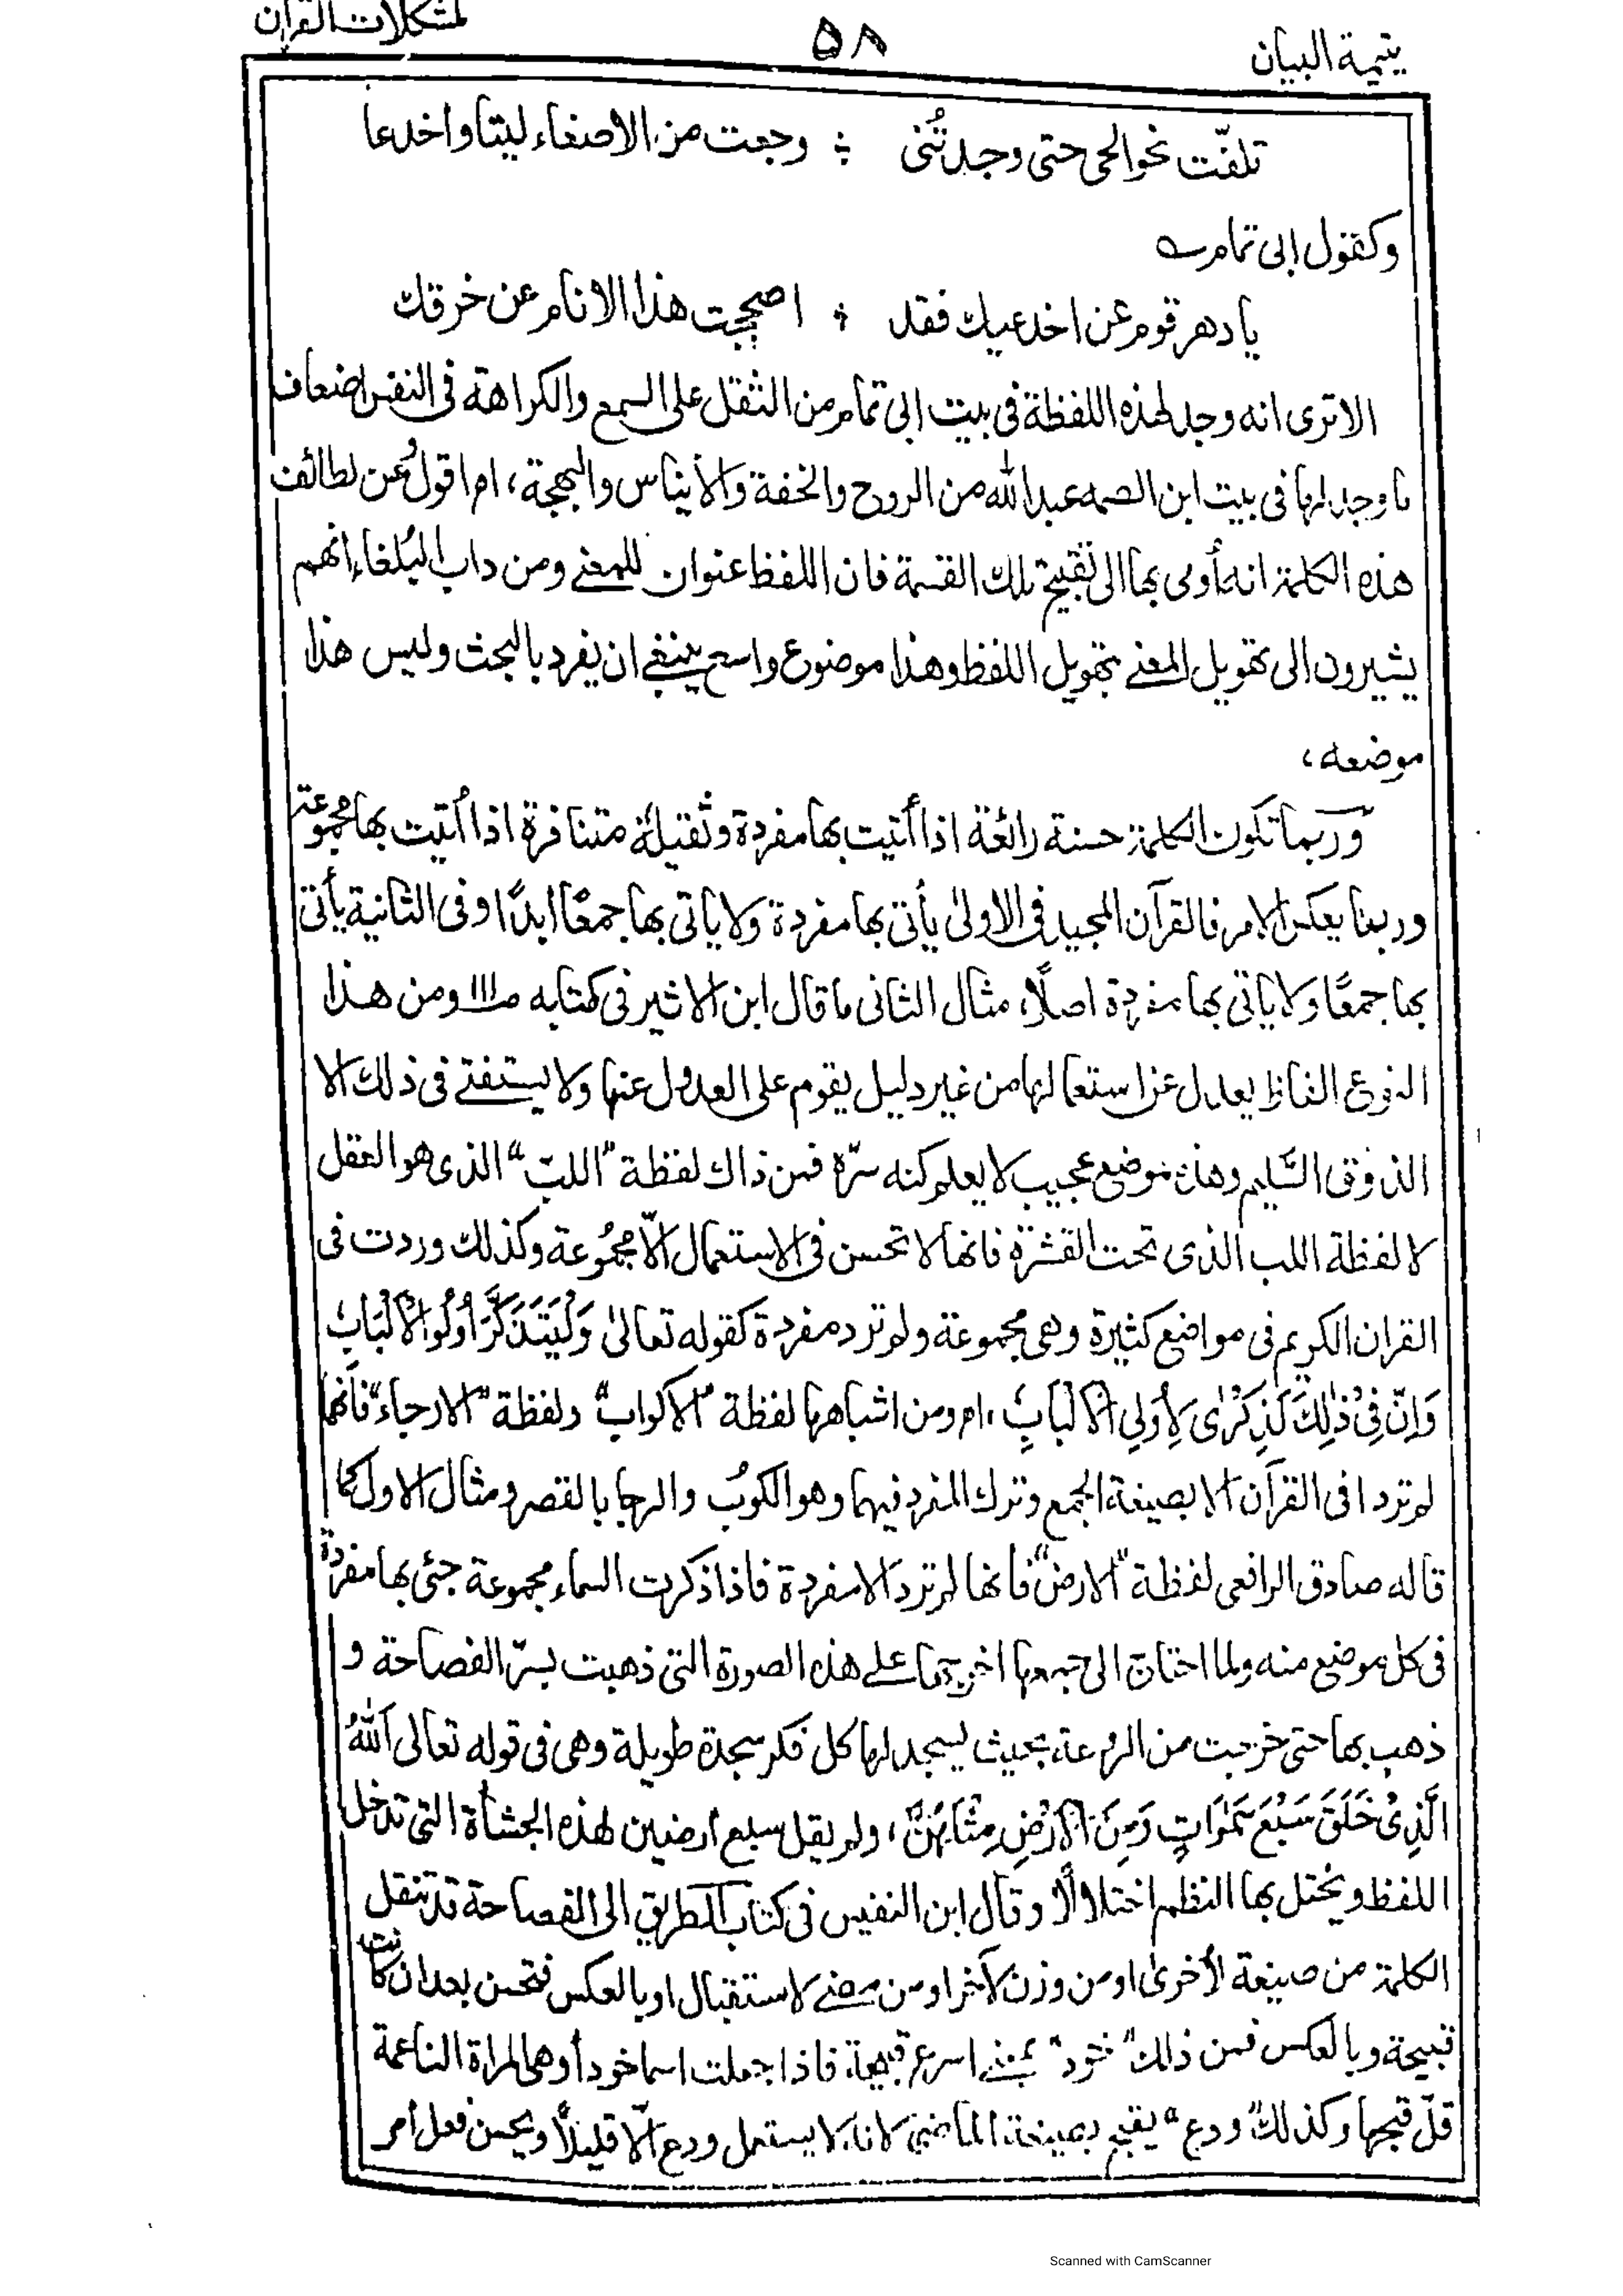 يتيمة البيان
٥٨
لمشكلات القرآن
تلفّت نحو الحى حتى وجدتُنى ؛ وجعت من الاصغاء ليتا واخدعا
وكقول ابى تمام
يا دهر قوم من اخدعيك فقد ؛ اضججت هذا الانام من خرقك
الا ترى انه وجد لهذه اللفظة فى بيت ابى تمام من الثقل على السمع والكراهة فى النفس اضعاف
ما وجد لها فى بيت ابن الصمه عبد الله من الروح والخفة والأيناس والبهجة، اه اقول من لطائف
هذه الكلمة انه أومى بها الى تقبيح تلك القسمة فان اللفظ عنوان للمعنى ومن داب البُلغاء انهم
يشيرون الى تهويل المعنى بتهويل اللفظ وهذا موضوع واسع ينبغى ان يفرد بالبحث وليس هذا
موضعه،
وربما تكون الكلمة حسنة رائعة اذا أتيت بها مفردة وثقيلة متنافرة اذا أتيت بها مجموعة
وربما يعكس الامر فالقرآن المجيد فى الاولىٰ يأتى بها مفردة ولا ياتى بها جمعًا ابدًا وفى الثانية يأتى
بها جمعًا ولا ياتى بها مفردة اصلًا، مثال الثانى ما قال ابن الاثير فى كتابه صـ١١١ ومن هذا
النوع الفاظ يعدل عن استعمالها من غير دليل يقوم على العدول عنها ولا يستفتى فى ذلك الا
الذوق السّليم وهذا موضع عجيب لا يعلم كنه سرّه فمن ذاك لفظة "اللبّ" الذى هو العقل
لا لفظة اللب الذى تحت القشرة فانها لا تحسن فى الاستعمال الّا مجمُوعة وكذلك وردت فى
القران الكريم فى مواضع كثيرة وهى مجموعة ولم ترد مفردة كقوله تعالىٰ وَلْيَتَذَكَّرَ اُولُوا الْاَلْبَابِ
وَاِنَّ فِيْ ذٰلِكَ لَذِكْرٰى لِاُولِي الْاَلْبَابِ، اه ومن اشباهها لفظة "الاكواب" ولفظة "الارجاء" فانهما
لم تردا فى القرآن الا بصيغة الجمع وترك المفرد فيهما وهو الكوبُ والرجا بالقصر ومثال الاول كما
قاله صادق الرافعى لفظة "الارض" فانها لم ترد الا مفردة فاذا ذكرت السماء مجموعة جئى بها مفردة
فى كل موضع منه ولما احتاج الى جمعها اخرجها على هذه الصورة التى ذهبت بسرّ الفصاحة و
ذهب بها حتى خرجت من الروعة بحيث ليسجد لها كل فكر سجدة طويلة وهى فى قوله تعالى اَللهُ
الَّذِيْ خَلَقَ سَبْعَ سَمٰوَاتٍ وَمِنَ الْاَرْضِ مِثْلَهُنَّ، ولم يقل سبع ارضين لهذه الجسأة التى تدخل
اللفظ ويختل بها النظم اختلالًا وقال ابن النفيس فى كتاب الطريق الى الفصاحة قد تنقل
الكلمة من صيغة لأخرىٰ او من وزن لآخر او من مضى لاستقبال او بالعكس فتحسن بعد ان كانت
قبيحة وبالعكس فمن ذلك "خود" بمعنى اسرع قبيحة فاذا جعلت اسما خودا وهى المراة الناعمة
قلّ قبحها وكذلك "ودع" يقبح بصيغة الماضى لانه لا يستعمل ودع الّا قليلًا ويحسن فعل امر
Scanned with CamScanner